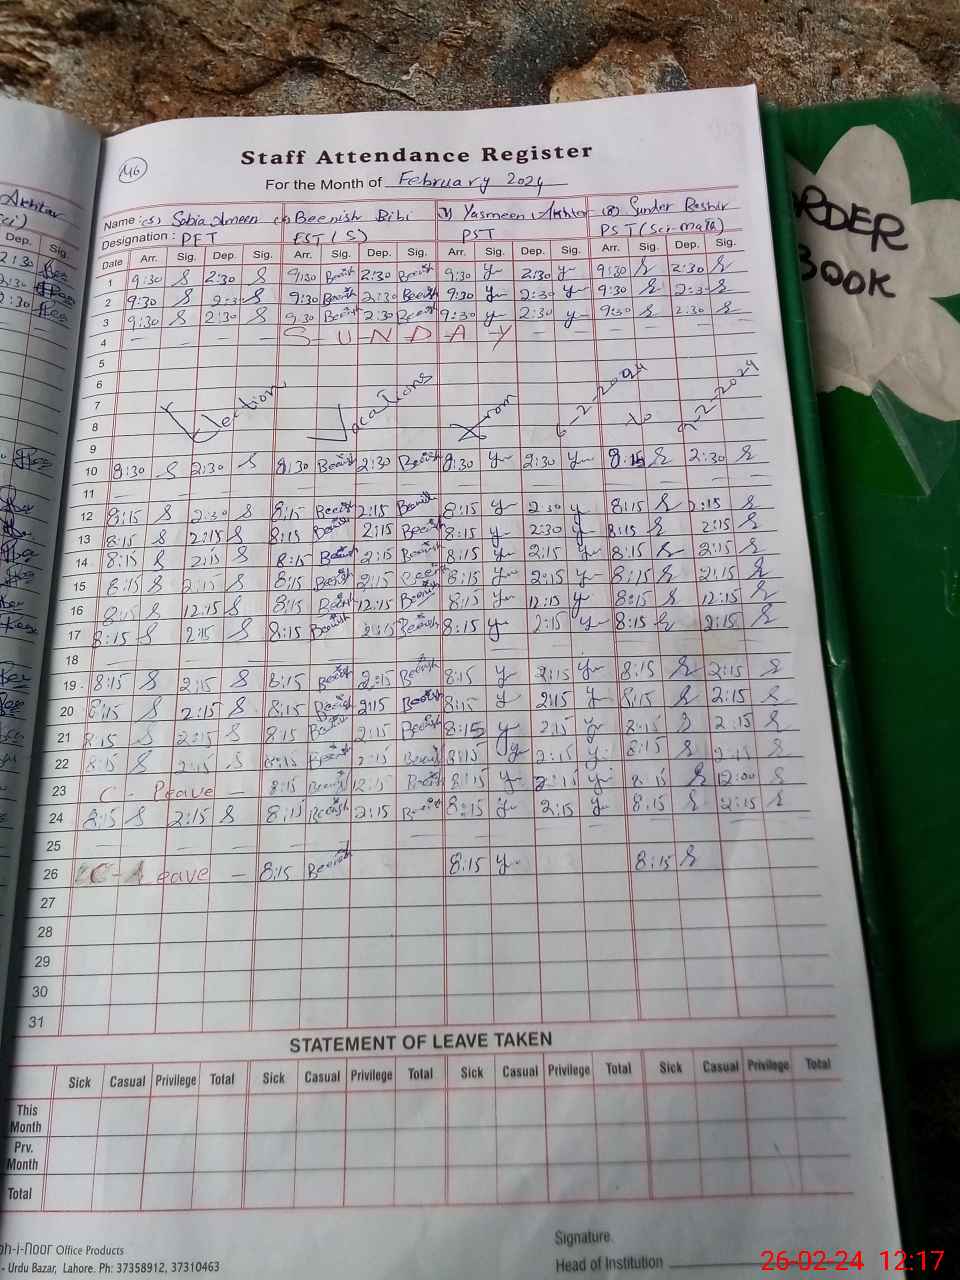 146
Staff Attendance Register
For the Month of February 2024
Akhtar
Name: (5) Sobia Ameen Beenish Bibi (7) Yasmeen Akhter (8) Sunder Bashir
Designation: PET EST (S) PST PST (Sci-math)
Dep. Sig. Date Arr. Sig. Dep. Sig. Arr. Sig. Dep. Sig. Arr. Sig. Dep. Sig. Arr. Sig. Dep. Sig.
2:30 1 9:30 S 2:30 S 9:30 Beenish 2:30 Beenish 9:30 y 2:30 y 9:30 2:30
2:30 2 9:30 S 2:30 S 9:30 Beenish 2:30 Beenish 9:30 y 2:30 y 9:30 2:30
2:30 3 9:30 S 2:30 S 9:30 Beenish 2:30 Beenish 9:30 y 2:30 y 9:30 2:30
4 S U N D A Y
5
6
7
8 Election Vacations From 6-2-2024 to 9-2-2024
9
10 8:30 S 2:30 S 8:30 Beenish 2:30 Beenish 8:30 y 2:30 y 8:15 2:30
11
12 8:15 S 2:30 S 8:15 Beenish 2:15 Beenish 8:15 y 2:30 y 8:15 2:15
13 8:15 S 2:15 S 8:15 Beenish 2:15 Beenish 8:15 y 2:30 y 8:15 2:15
14 8:15 S 2:15 S 8:15 Beenish 2:15 Beenish 8:15 y 2:15 y 8:15 2:15
15 8:15 S 2:15 S 8:15 Beenish 2:15 Beenish 8:15 y 2:15 y 8:15 2:15
16 8:15 S 12:15 S 8:15 Beenish 12:15 Beenish 8:15 y 12:15 y 8:15 12:15
17 8:15 S 2:15 S 8:15 Beenish 2:15 Beenish 8:15 y 2:15 y 8:15 2:15
18
19 8:15 S 2:15 S 8:15 Beenish 2:15 Beenish 8:15 y 2:15 y 8:15 2:15
20 8:15 S 2:15 S 8:15 Beenish 2:15 Beenish 8:15 y 2:15 y 8:15 2:15
21 8:15 S 2:15 S 8:15 Beenish 2:15 Beenish 8:15 y 2:15 y 8:15 2:15
22 8:15 S 2:15 S 8:15 Beenish 2:15 Beenish 8:15 y 2:15 y 8:15 2:15
23 C - Leave - 8:15 Beenish 12:15 Beenish 8:15 y y 8:15 12:00
24 8:15 S 2:15 S 8:15 Beenish 2:15 Beenish 8:15 y 2:15 y 8:15 2:15
25
26 C - Leave - 8:15 Beenish 8:15 y 8:15
27
28
29
30
31
STATEMENT OF LEAVE TAKEN
Sick Casual Privilege Total Sick Casual Privilege Total Sick Casual Privilege Total Sick Casual Privilege Total
This Month
Prv. Month
Total
Signature.
Head of Institution
Office Products
- Urdu Bazar, Lahore. Ph: 37358912, 37310463
RDER
BOOK
26-02-24 12:17